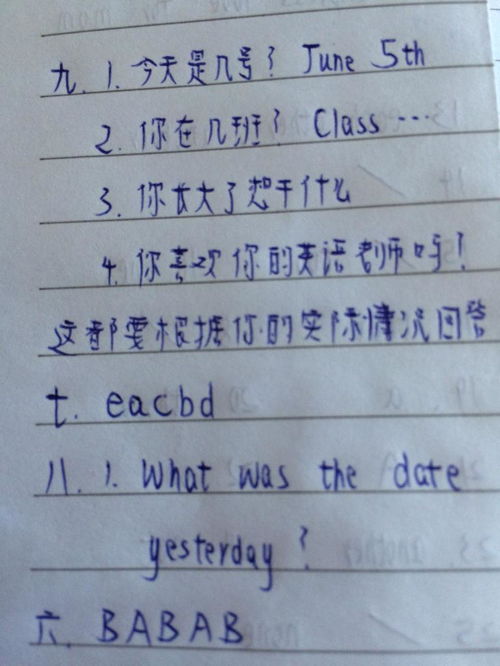 九. 1. 今天是几号? June 5th
2. 你在几班? Class …
3. 你长大了想干什么
4. 你喜欢你的英语老师吗?
这都要根据你的实际情况回答
十. eacbd
八. 1. What was the date
yesterday?
六. BABAB